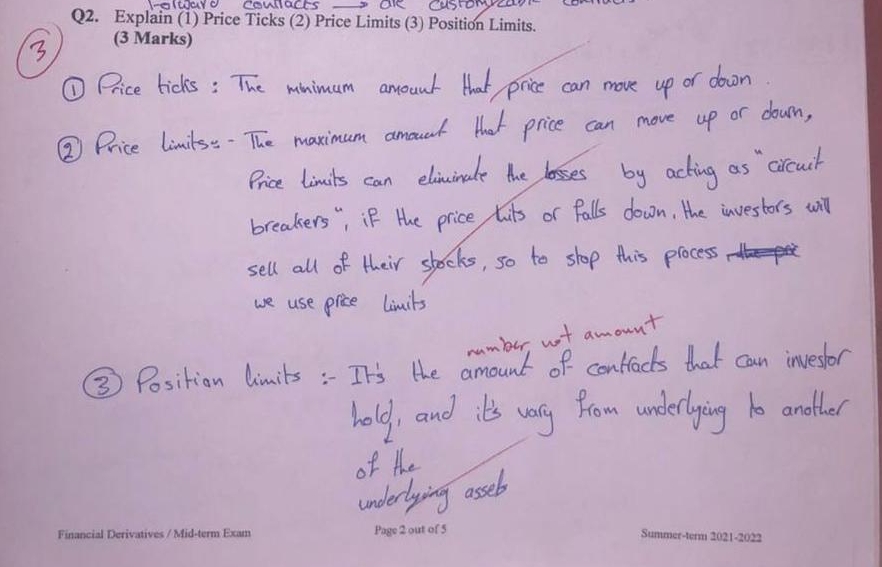 Forward contracts → are customizable contracts
Q2. Explain (1) Price Ticks (2) Price Limits (3) Position Limits.
(3 Marks)
3
① Price ticks : The minimum amount that price can move up or down.
② Price limits :- The maximum amount that price can move up or down,
Price limits can eliminate the losses by acting as "circuit
breakers", if the price hits or falls down, the investors will
sell all of their stocks, so to stop this process the pri
we use price limits
number not amount
③ Position limits :- It's the amount of contracts that can investor
hold, and it's vary from underlying to another
of the
underlying assets
Financial Derivatives / Mid-term Exam Page 2 out of 5 Summer-term 2021-2022